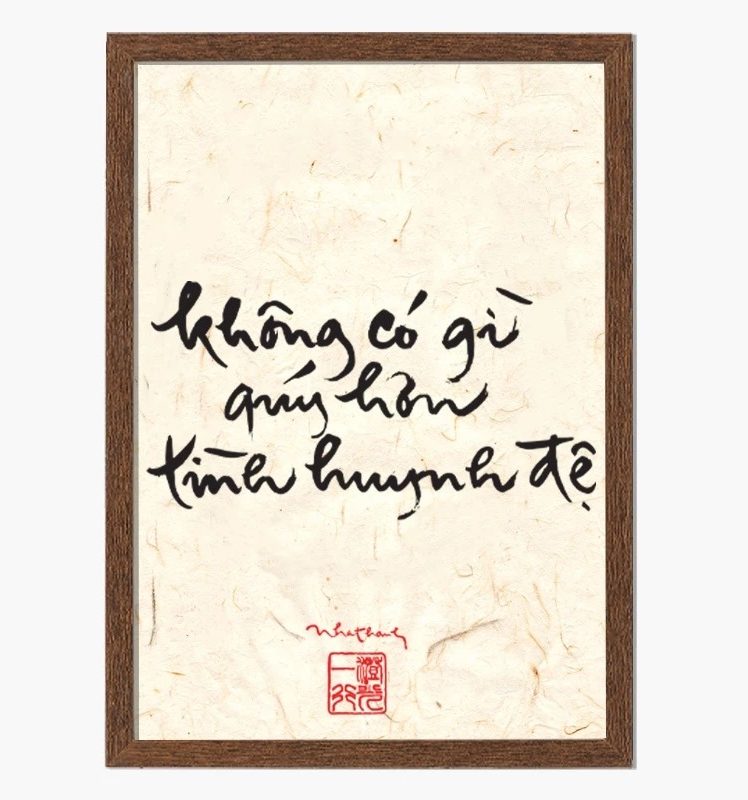 không có gì
quý hơn
tình huynh đệ
nhất hạnh